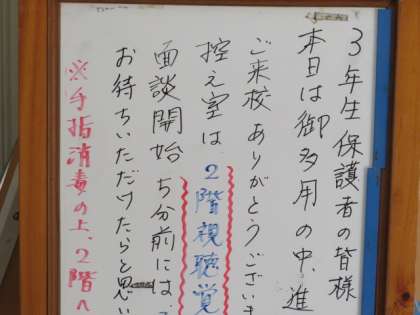 3年生保護者の皆様
本日は御多用の中、進
ご来校ありがとうございま
控え室は2階視聴覚
面談開始5分前には
お待ちいただけたらと思い
※手指消毒の上、2階へ